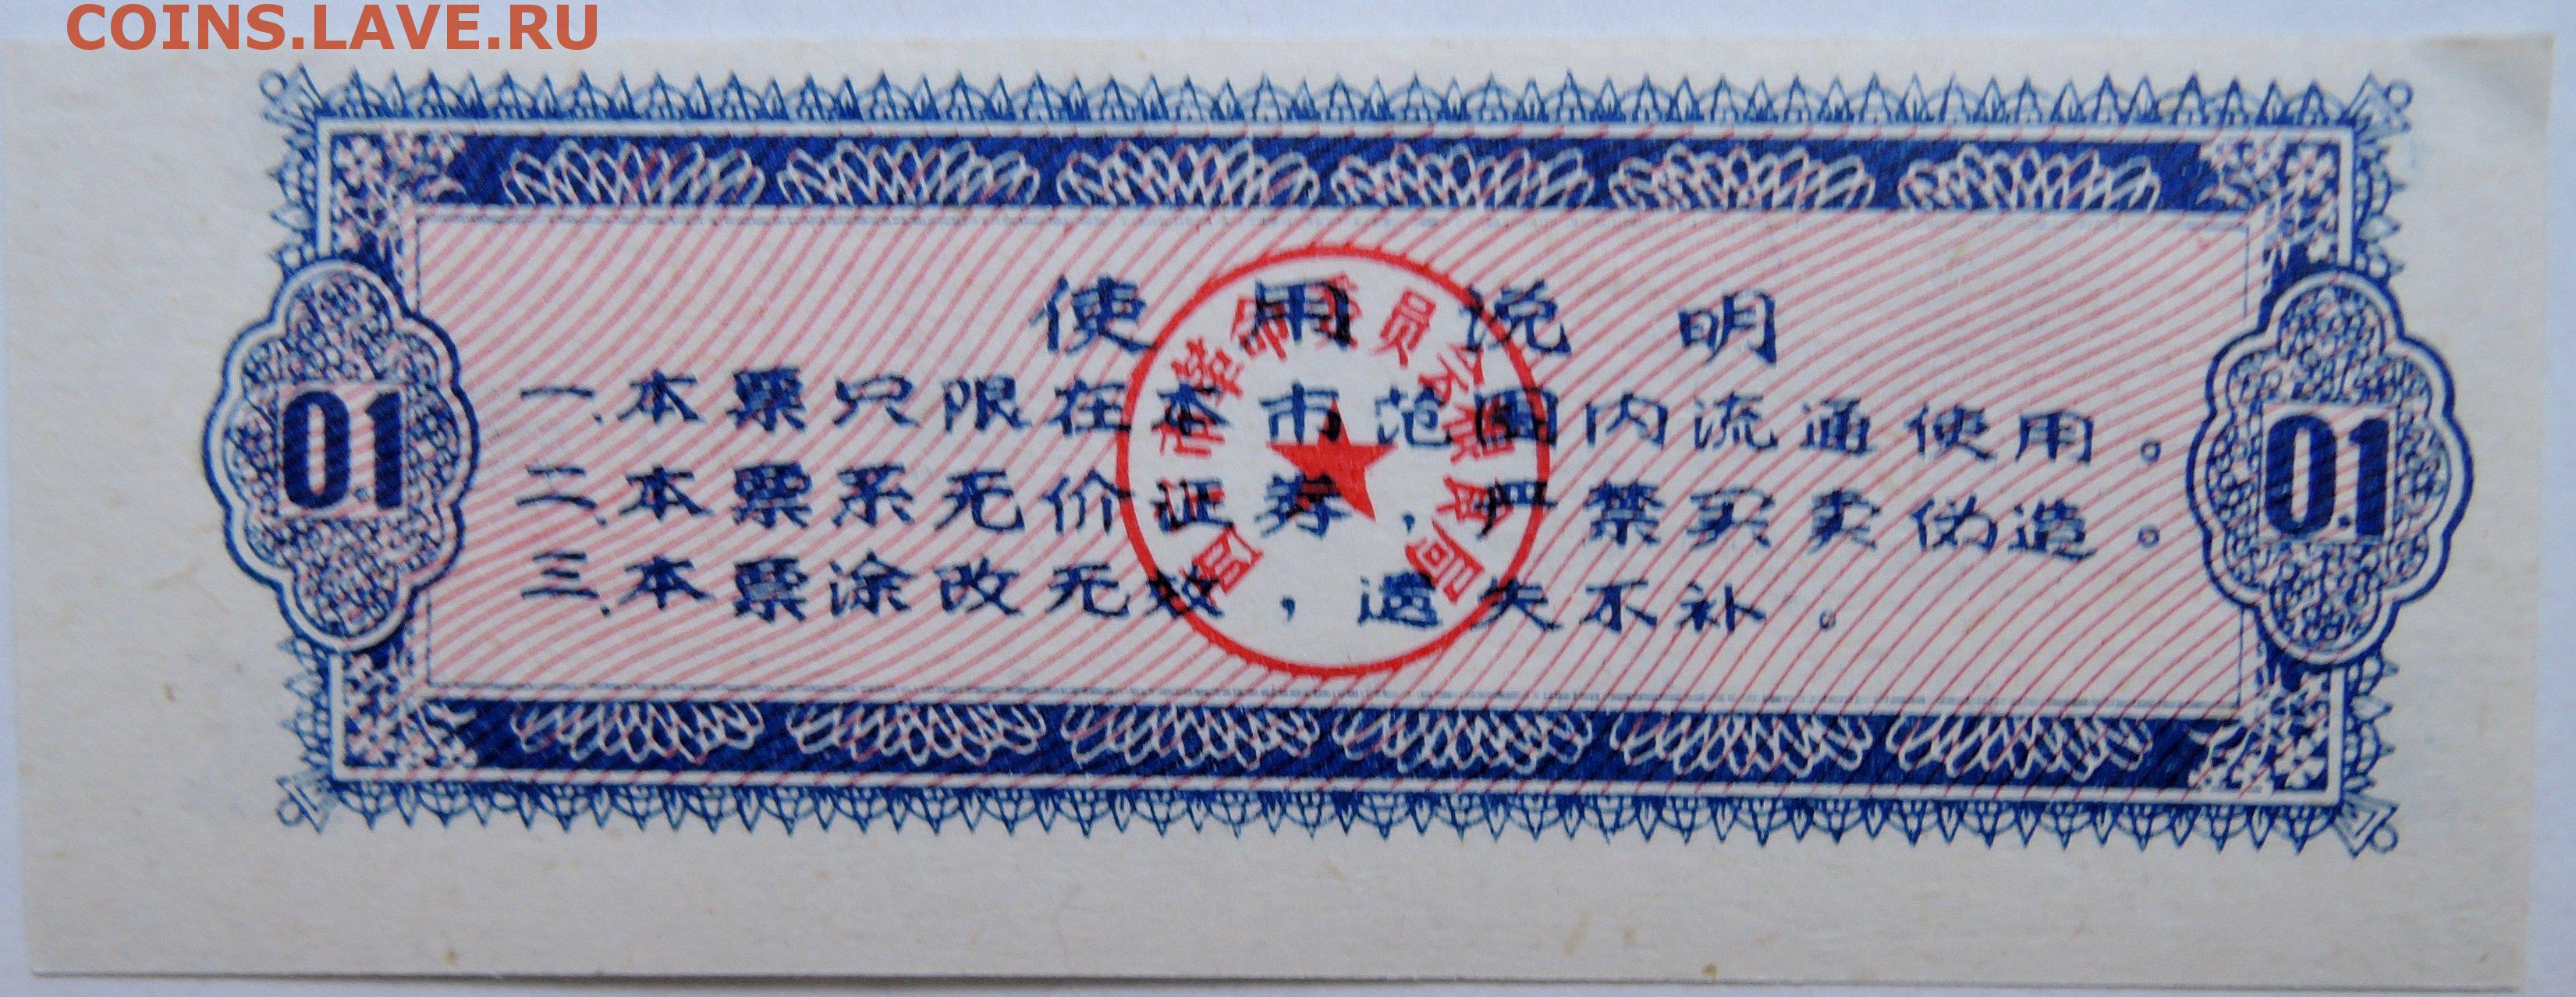 COINS.LAVE.RU
使用说明
0.1
一.本票只限在本市范围内流通使用。
二.本票系无价证券,严禁买卖伪造。
三.本票涂改无效,遗失不补。
0.1
市革命委员会粮食局